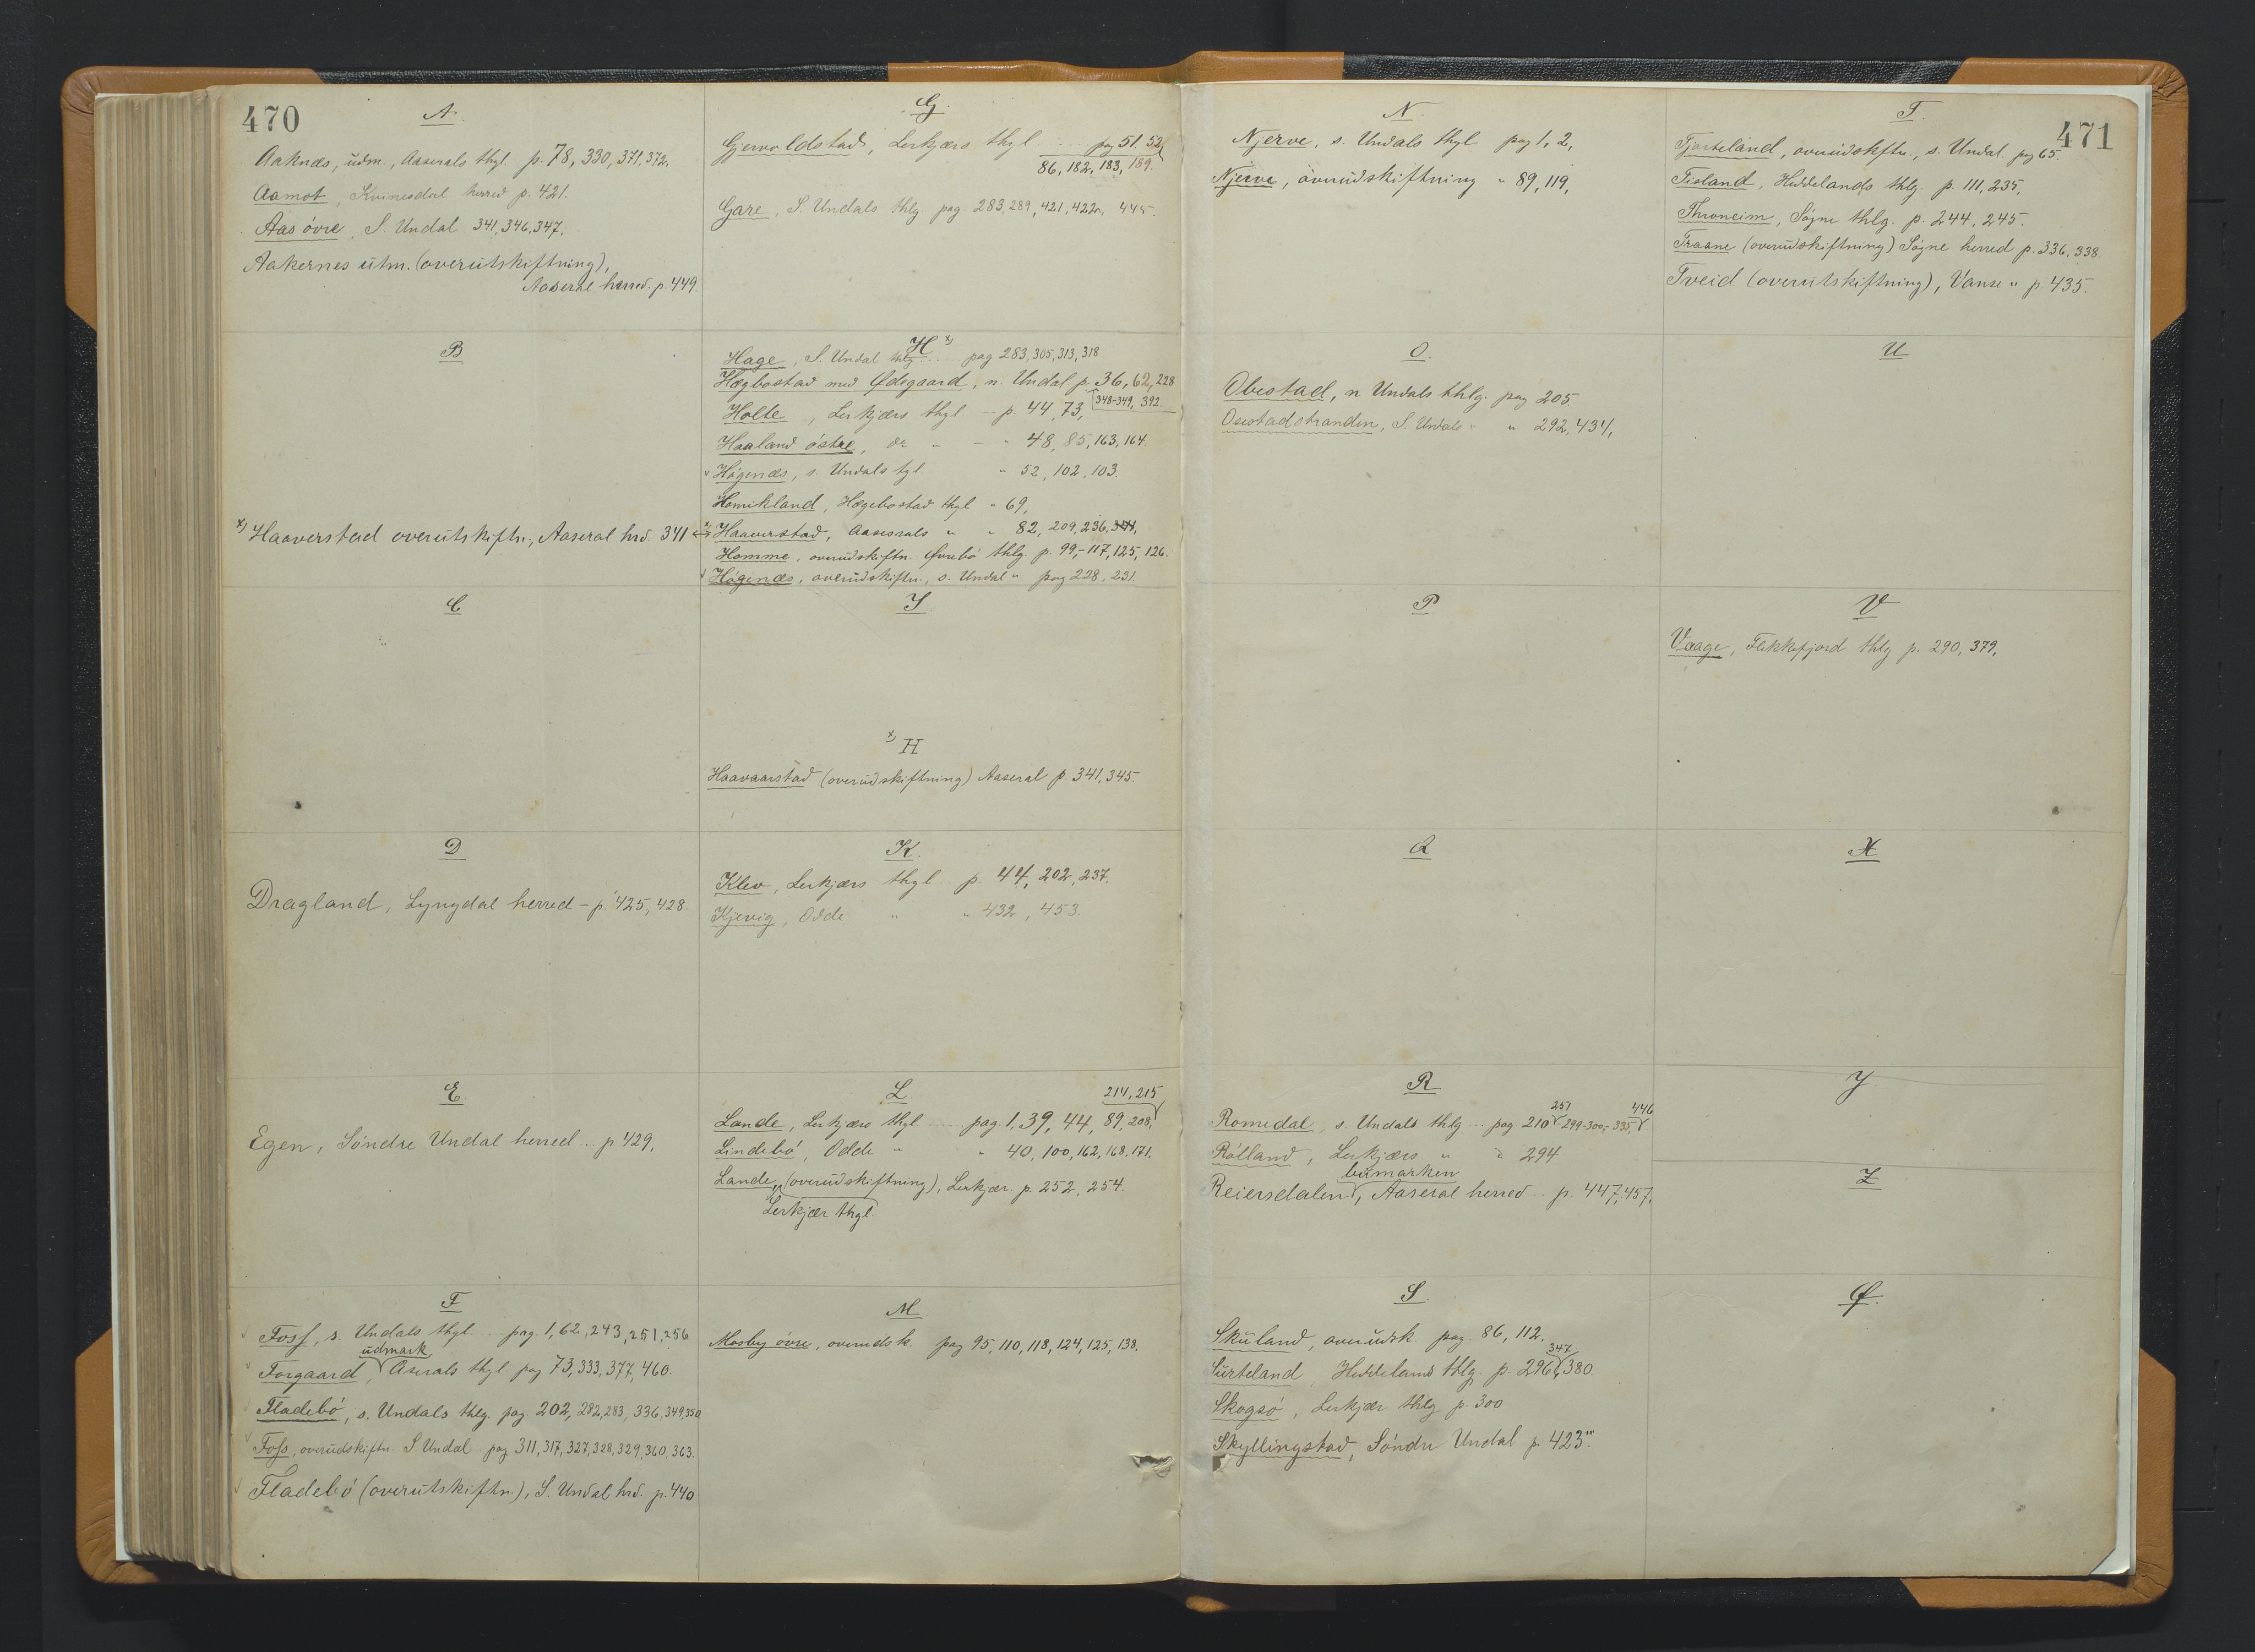 470
A.
Aaknæs, udm., Aaserals thgl. p. 78, 330, 371, 372.
Aamot, Kvinesdal herred p. 421.
Aas övre, S. Undal 341, 346, 347.
Aakernes utm. (overutskiftning),
Aaseral herred. p. 449.
B
x) Haaverstad overutskiftn., Aaseral hrd. 341
C
D
Dragland, Lyngdal herred - p. 425, 428.
E.
Egen, Söndre Undal herred .. p 429,
F
Foss, s. Undals thgl. ... pag. 1, 62, 243, 251, 256
udmark
Forgaard, Aserals thgl pag 73, 333, 377, 460.
Fladebö, s. Undals thlg. pag. 202, 282, 283, 336, 349, 350
Foss, overudskiftn. S. Undal pag 311, 317, 327, 328, 329, 360, 363.
Fladebö (overutskiftn.), S. Undal hrd. p. 440
G
Gjervoldstad, Lerkjærs thgl ..... pag 51. 52,
86, 182, 183, 189.
Gare, S. Undals thlg pag 283, 289, 421, 422, 445.
H x)
Hage, S. Undal thlg .... pag 283, 305, 313, 318
Hægbostad med Ødegaard, n. Undal p. 36, 62, 228
348-349, 392.
Holte, Lerkjærs thgl - p. 44, 73,
Haaland östre, do " - " 48, 85, 163, 164.
Högenæs, s. Undals tgl " 52, 102, 103.
Homikland, Hægebostad thgl " 69,
x) Haaverstad, Aaserals " " 82, 209, 236, 341,
Homme, overudskiftn. Øvrebö thlg. p. 99, - 117, 125, 126.
Högenæs, overudskiftn., s. Undal " pag 228, 231.
I
x) H
Haavaarstad (overudskiftning) Aaseral p 341, 345.
K.
Klev, Lerkjærs thgl. p. 44, 202, 237.
Kjevig, Odde " " 432, 453.
L.
214, 215
Lande, Lerkjærs thgl ..... pag 1, 39, 44, 89, 208,
Lindebö, Odde " " 40, 100, 162, 168, 171.
Lande, (overudskiftning), Lerkjær. p. 252, 254.
Lerkjær thgl.
M.
Mosby övre, overudsk. pag 95, 110, 118, 124, 125, 138.
471
N.
Njerve, s. Undals thgl pag 1, 2,
Njerve, overudskiftning " 89, 119,
O.
Obestad, n Undals thlg. pag 205
Osestadstranden, S. Undals " " 292, 434,
P
Q
R
257 446
Romedal, s. Undals thlg .. pag 210 299-300, - 335,
Rölland, Lerkjærs " " 294
bumarken
Reiersdalen, Aaseral herred .. p. 447, 457.
S.
Skuland, overudsk. pag. 86, 112.
347
Surteland, Heddelands thlg. p. 296, 380.
Skogsö, Lerkjær thlg p. 300
Skyllingstad, Söndre Undal p 423".
T.
Tjorteland, overudskftn., s. Undal. pag 65.
Tisland, Heddelands thlg. p. 111, 235,
Throneim, Sögne thlg. p. 244, 245.
Traane (overudskiftning) Sögne herred p. 336, 338.
Tveid (overutskiftning), Vanse " p 435.
U
V
Vaage, Flekkefjord thlg p. 290, 379,
X
Y
Z
Ø.